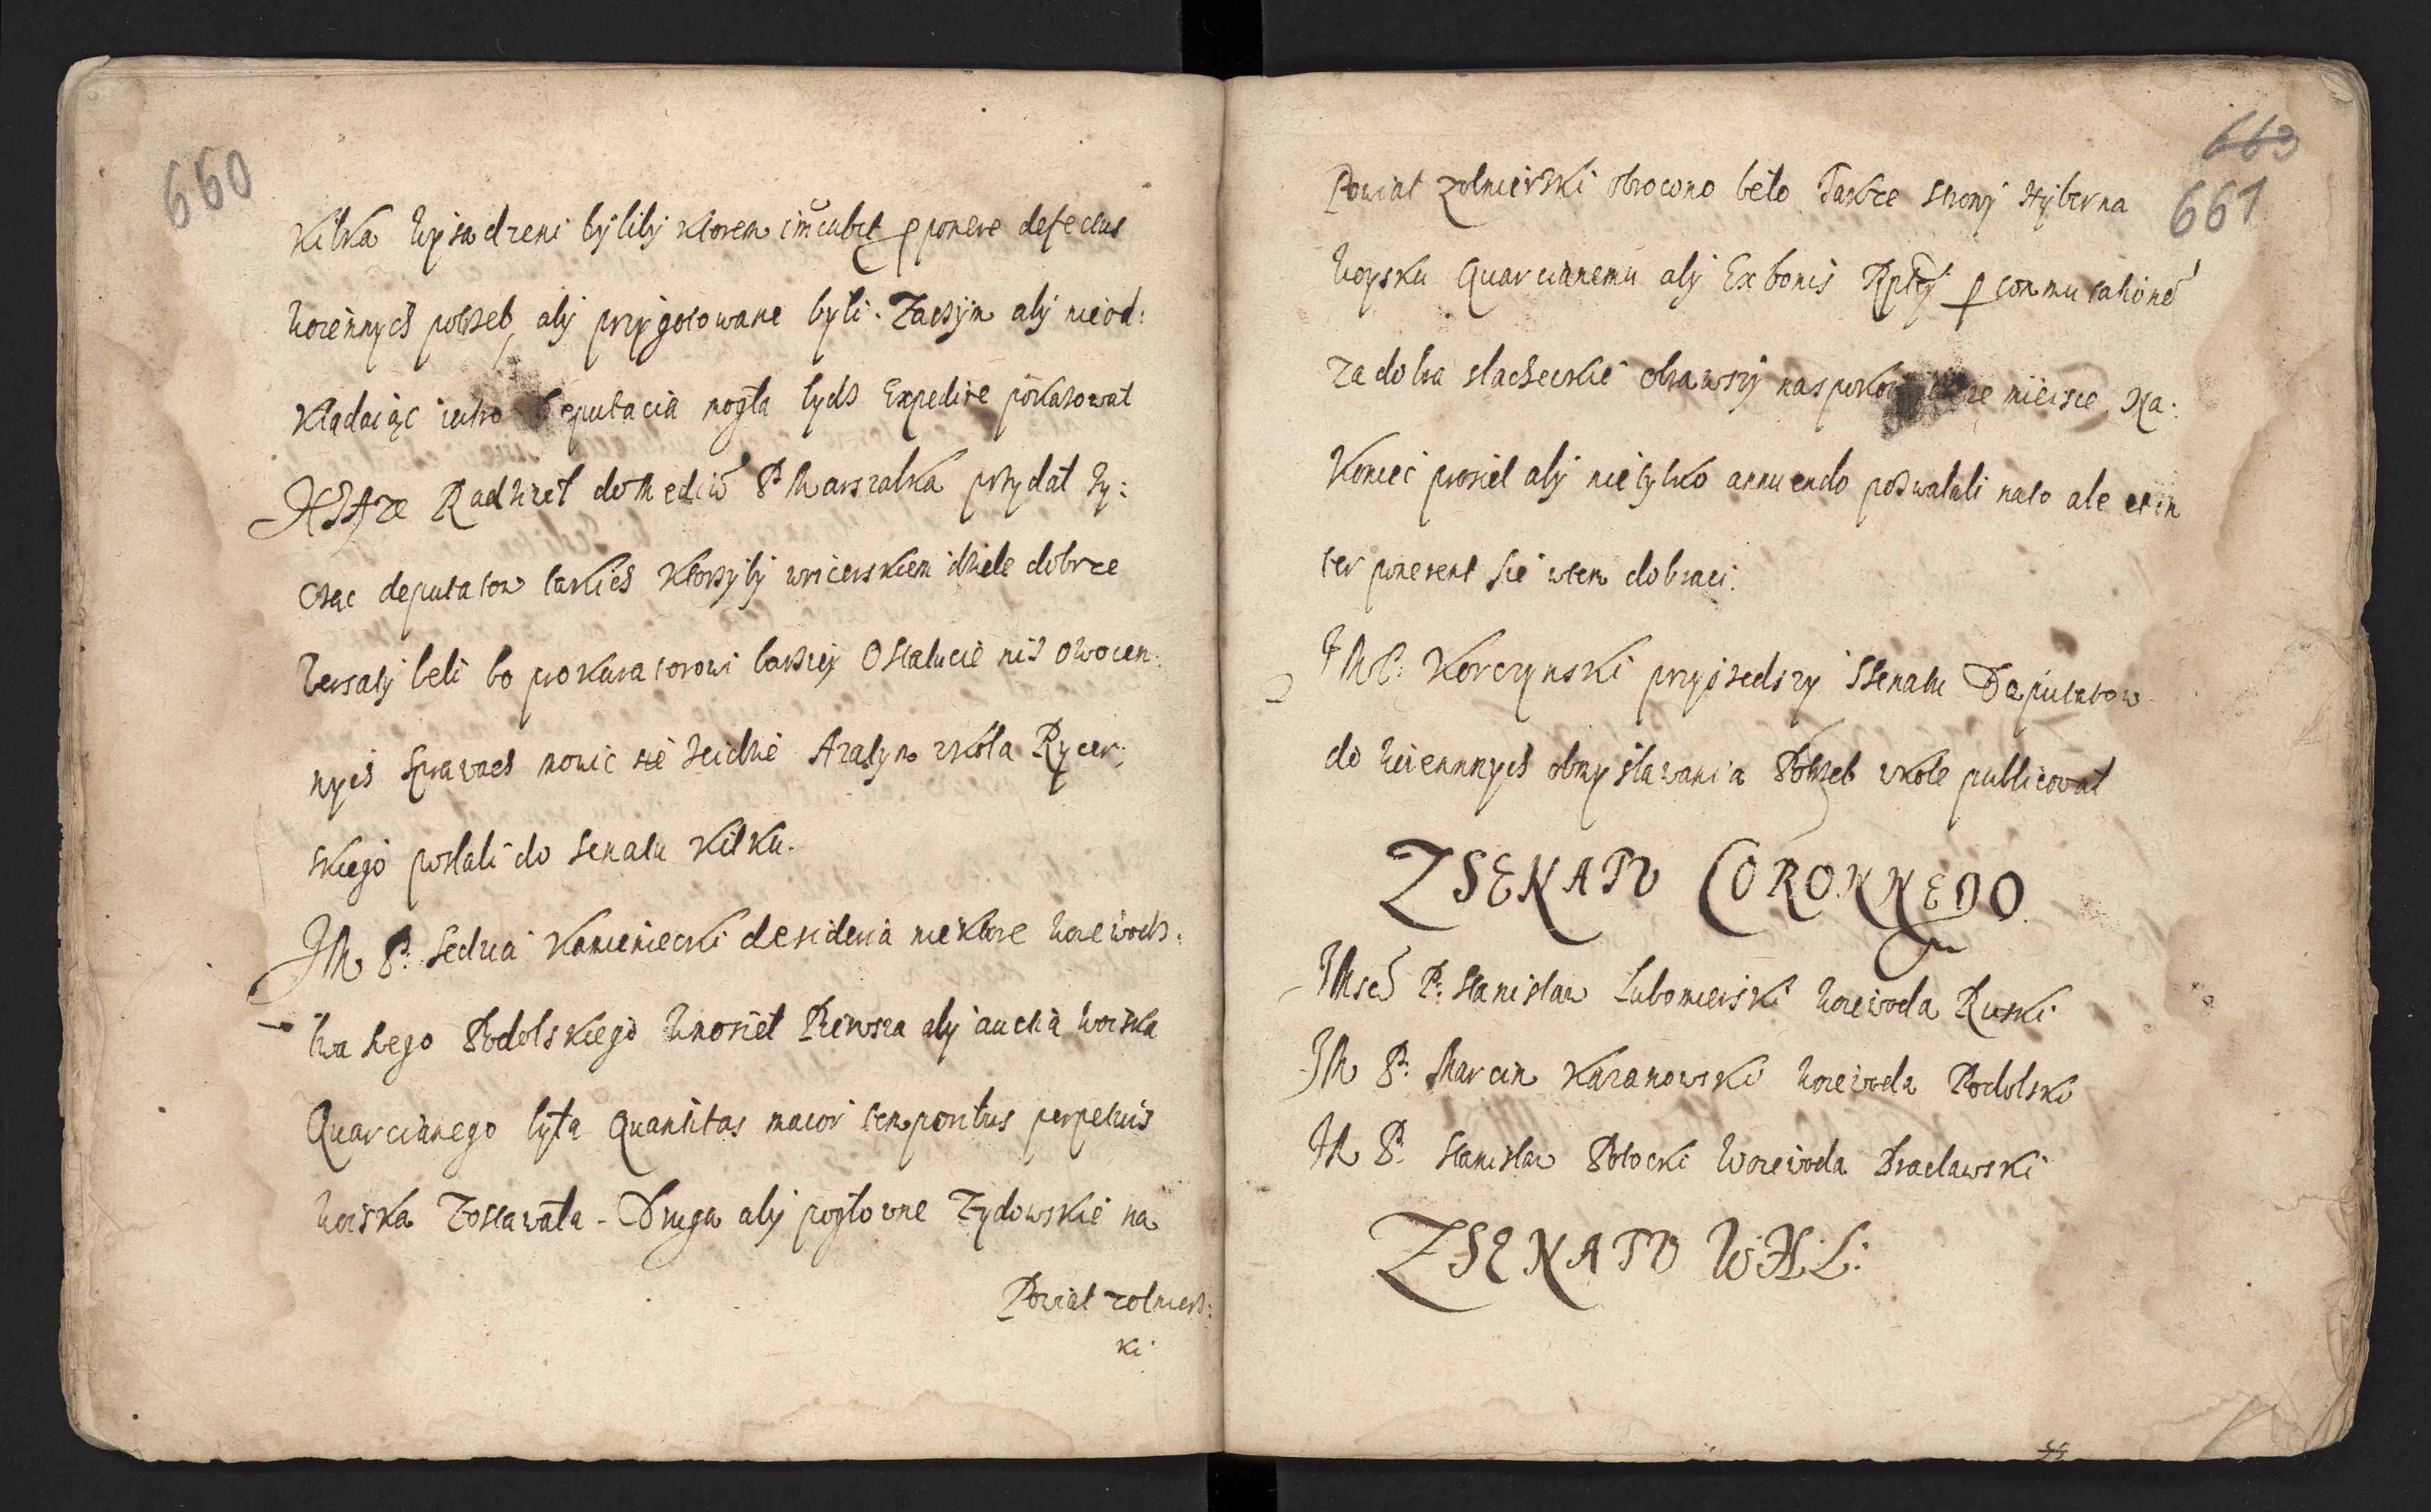 660
Kilka wysadzeni byliby ktorem incubet proponere defectus
woiennych potrzeb, aby przygotowane byli. Zaczym aby nieod:
kładaiąc iutro Deputacia mogła bydz Expedire pokazował
Radziwł do P: Marszalka przydał zy:
cząc deputatow takich ktorzyby wricerskiem dziele dobrze
wersaty beli bo prokuratorowi barziey O statucie niz owoien:
nych sprawach mowic się zeidzie Azatym zkoła Rycer:
skiego posłali do senatu kilku.
JM P: Sedzia Kamieniecki desideria niektore woiewodz:
twa swego Podolskiego wnosieł Pierwsza aby auctia woiska
Quarcianego była Quantitas maior temporibus perpetuis
woiska zostawała. Druga aby pogłowne Zydowskie na
Powiat zolniers:
ki
663
661
Powiat zolnierski obrocono beło Takze strony Hyberna
woysku Quarcianemu aby Ex bonis Rptey p conmutationē
za dobra slacheckie obrawszy mieisce. Na:
Koniec prosieł aby nietylko annuendo pozwalali nato ale et in
ter ponerent sie wtem dobraci.
JM P: Korczynski przyszedszy Ssenatu Deputatow
do woiennnych obmysławania Potrzeb wkole publicował
ZSENATV CORONNEGO
JMsć P: Stanisław Lubomierski woiewoda Ruski
JM P: Marcin Kazanowski woiewoda Podolski
JM P: Stanisław Potocki Woiewoda Bracławski
ZSENATV W: X: L: